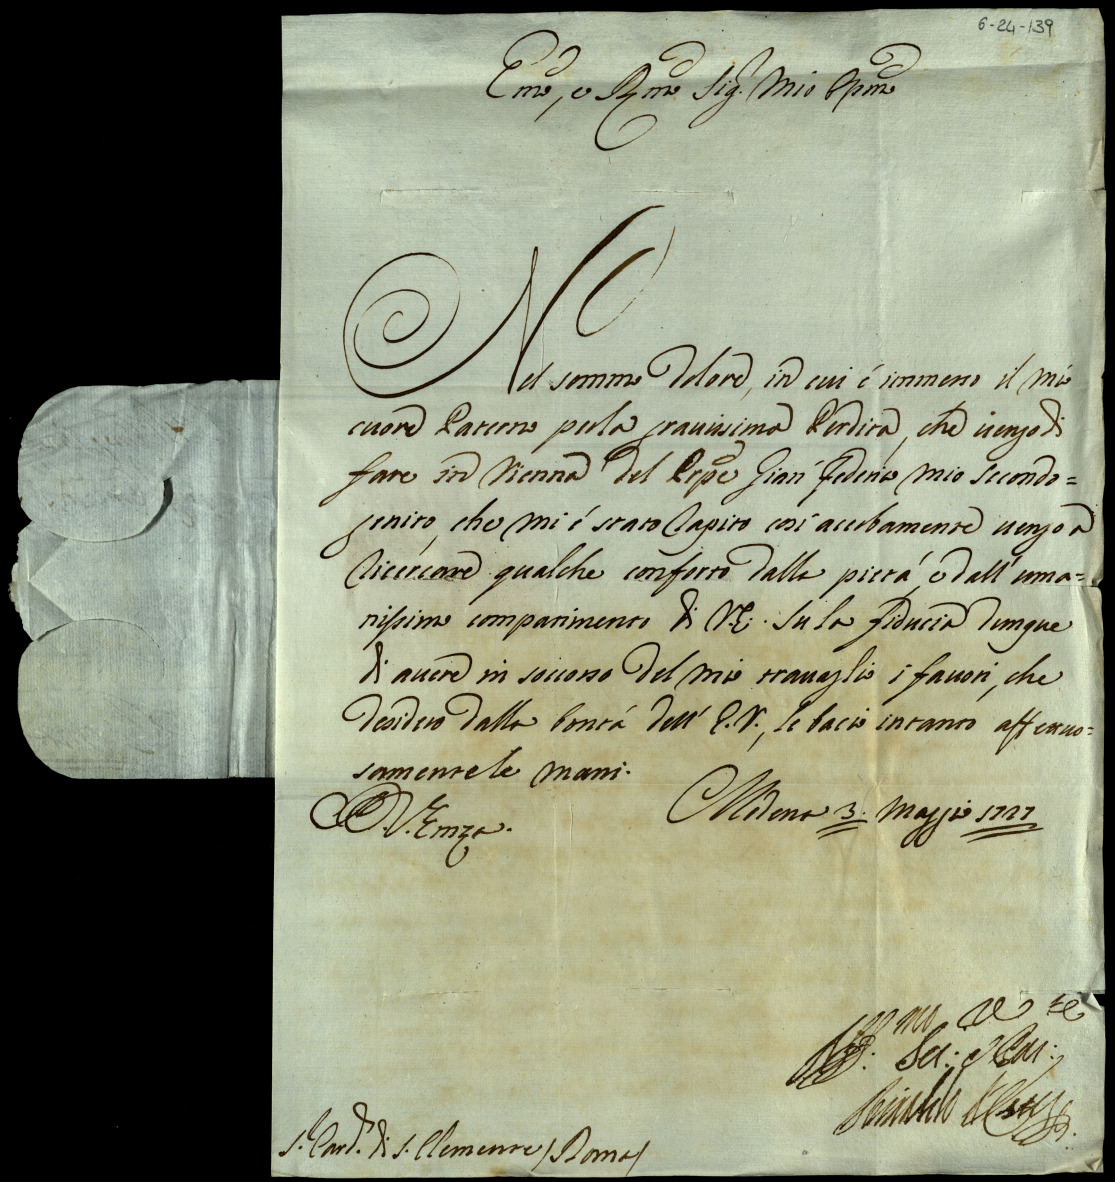 6-24-139
Emo, e Rmo Sig. Mio Opmo
Nel sommo dolore, in cui è immerso il mio
cuore Paterno per la gravissima Perdita, che vengo di
fare in Vienna del Prpe Gian Federico mio secondo=
genito, che mi è stato rapito così acerbamente vengo a
ricercare qualche conforto dalla pietà, e dall' uma=
nissimo compatimento di V.E. Su la fiducia dunque
di avere in soccorso del mio travaglio i favori, che
desidero dalla bontà dell' E.V., le bacio intanto affettuo=
samente le mani.
D. V. Emza.
Modena 3. Maggio 1727
Rinaldo d'Este
Sr. Card. di S. Clemente / Roma /